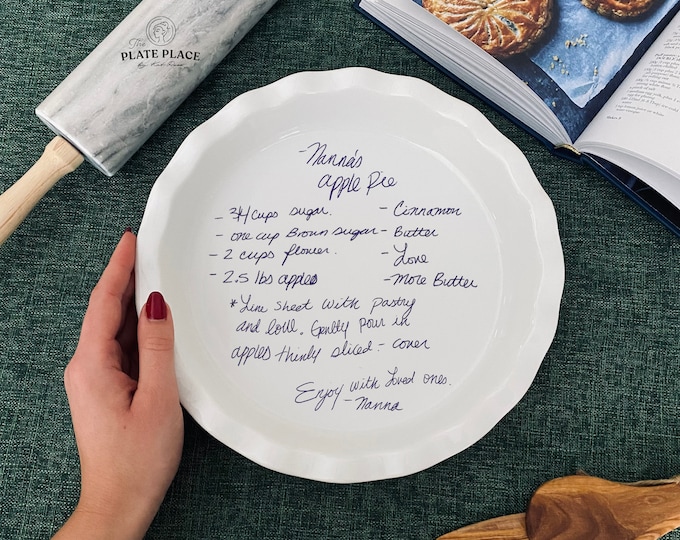 The
PLATE PLACE
-Nanna's
apple Pie
- 3/4 cups sugar.
- one cup Brown sugar
- 2 cups flower.
- 2.5 lbs apples
- Cinnamon
- Butter
- Love
- More Butter
* Line sheet with pastry
and love. Gently pour in
apples thinly sliced. - cover
Enjoy with Loved ones.
- Nanna